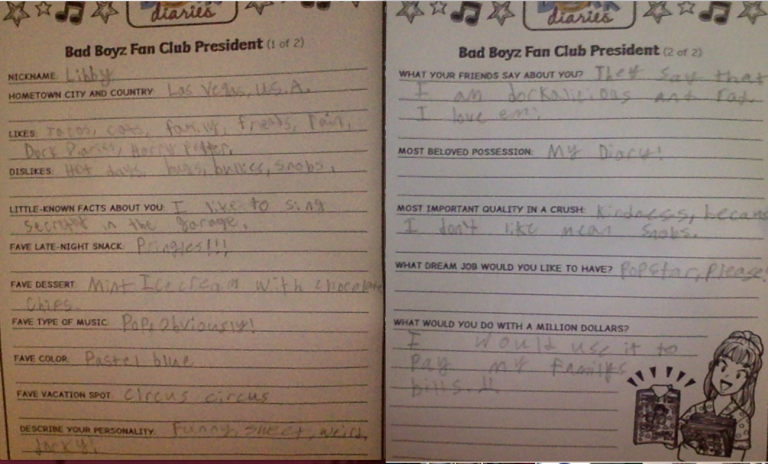 diaries
Bad Boyz Fan Club President (1 of 2)
NICKNAME: Libby
HOMETOWN CITY AND COUNTRY: Las Vegas, U.S.A.
LIKES: Tacos, cats, family, Rain,
Dork Diaries, Harry Potter,
DISLIKES: Hot days, bugs, bullies, snobs,
LITTLE-KNOWN FACTS ABOUT YOU: I like to sing
secretly in the garage.
FAVE LATE-NIGHT SNACK: Pringles!!!
FAVE DESSERT: Mint Icecream with chocolate
chips.
FAVE TYPE OF MUSIC: Pop, Obviously!
FAVE COLOR: Pastel blue
FAVE VACATION SPOT: Circus circus
DESCRIBE YOUR PERSONALITY: Funny, sweet, weird,
dorky!
diaries
Bad Boyz Fan Club President (2 of 2)
WHAT YOUR FRIENDS SAY ABOUT YOU? They say that
I am dorkalicious and
I love
MOST BELOVED POSSESSION: My Diary!
MOST IMPORTANT QUALITY IN A CRUSH: Kindness, becaus
I don't like mean snobs.
WHAT DREAM JOB WOULD YOU LIKE TO HAVE? Popstar, please!
WHAT WOULD YOU DO WITH A MILLION DOLLARS?
I would use it to
pay my familys
bills.